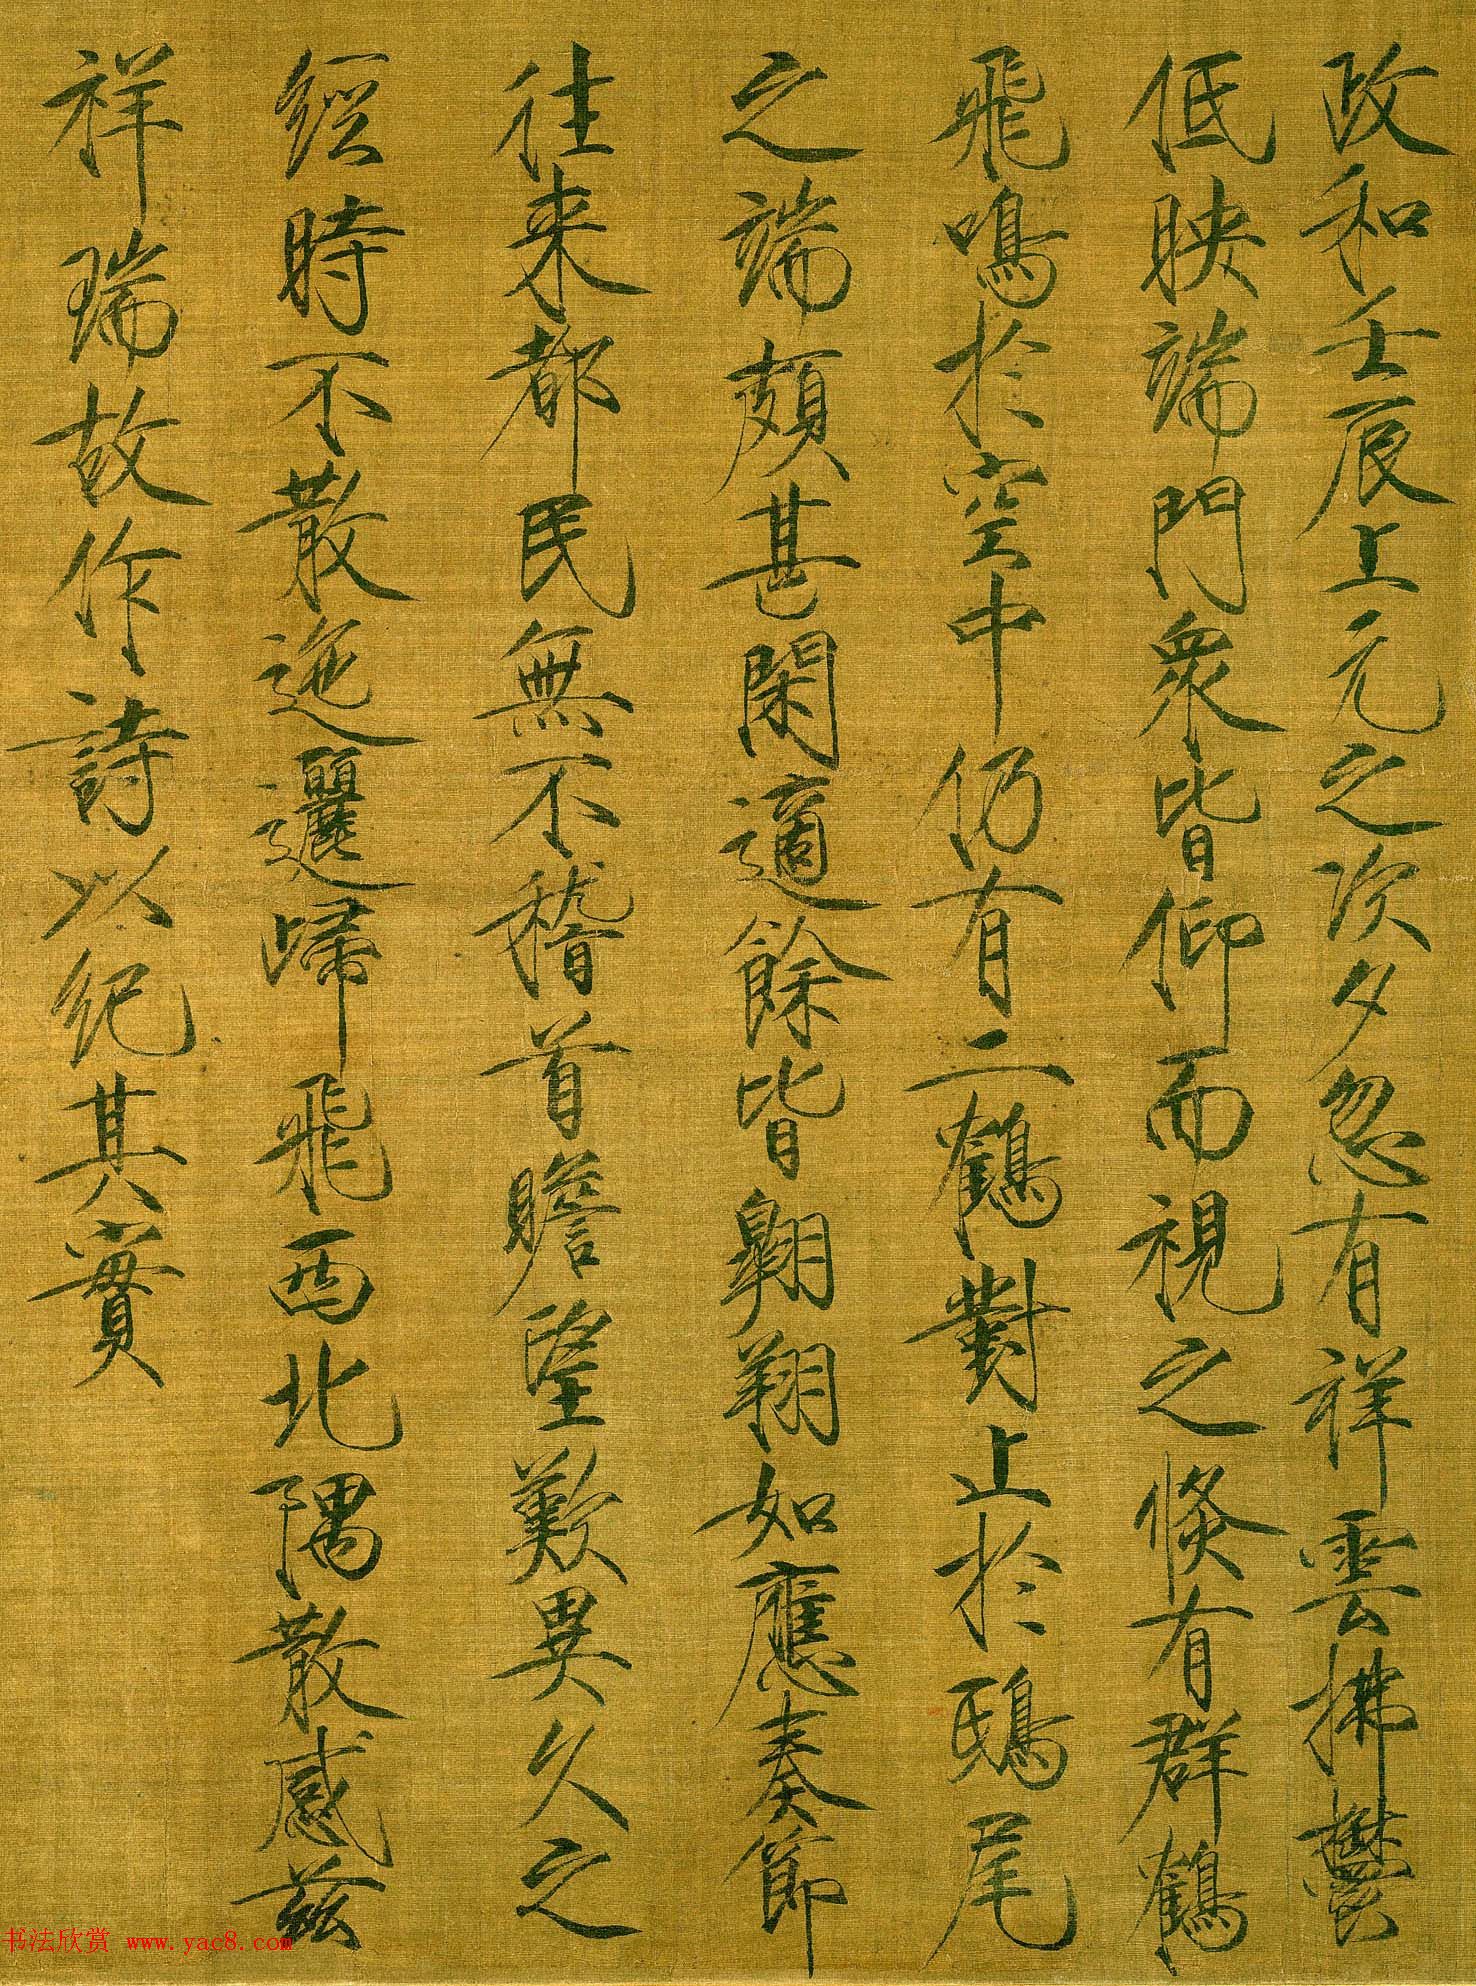 政和壬辰上元之次夕忽有祥雲拂鬱
低映端門衆皆仰而視之倏有群鶴
飛鳴於空中仍有二鶴對止於鴟尾
之端頗甚閑適餘皆翱翔如應奏節
往来都民無不稽首瞻望歎異久之
經時不散迤邐歸飛西北隅散感茲
祥瑞故作詩以紀其實
书法欣赏 www.yac8.com